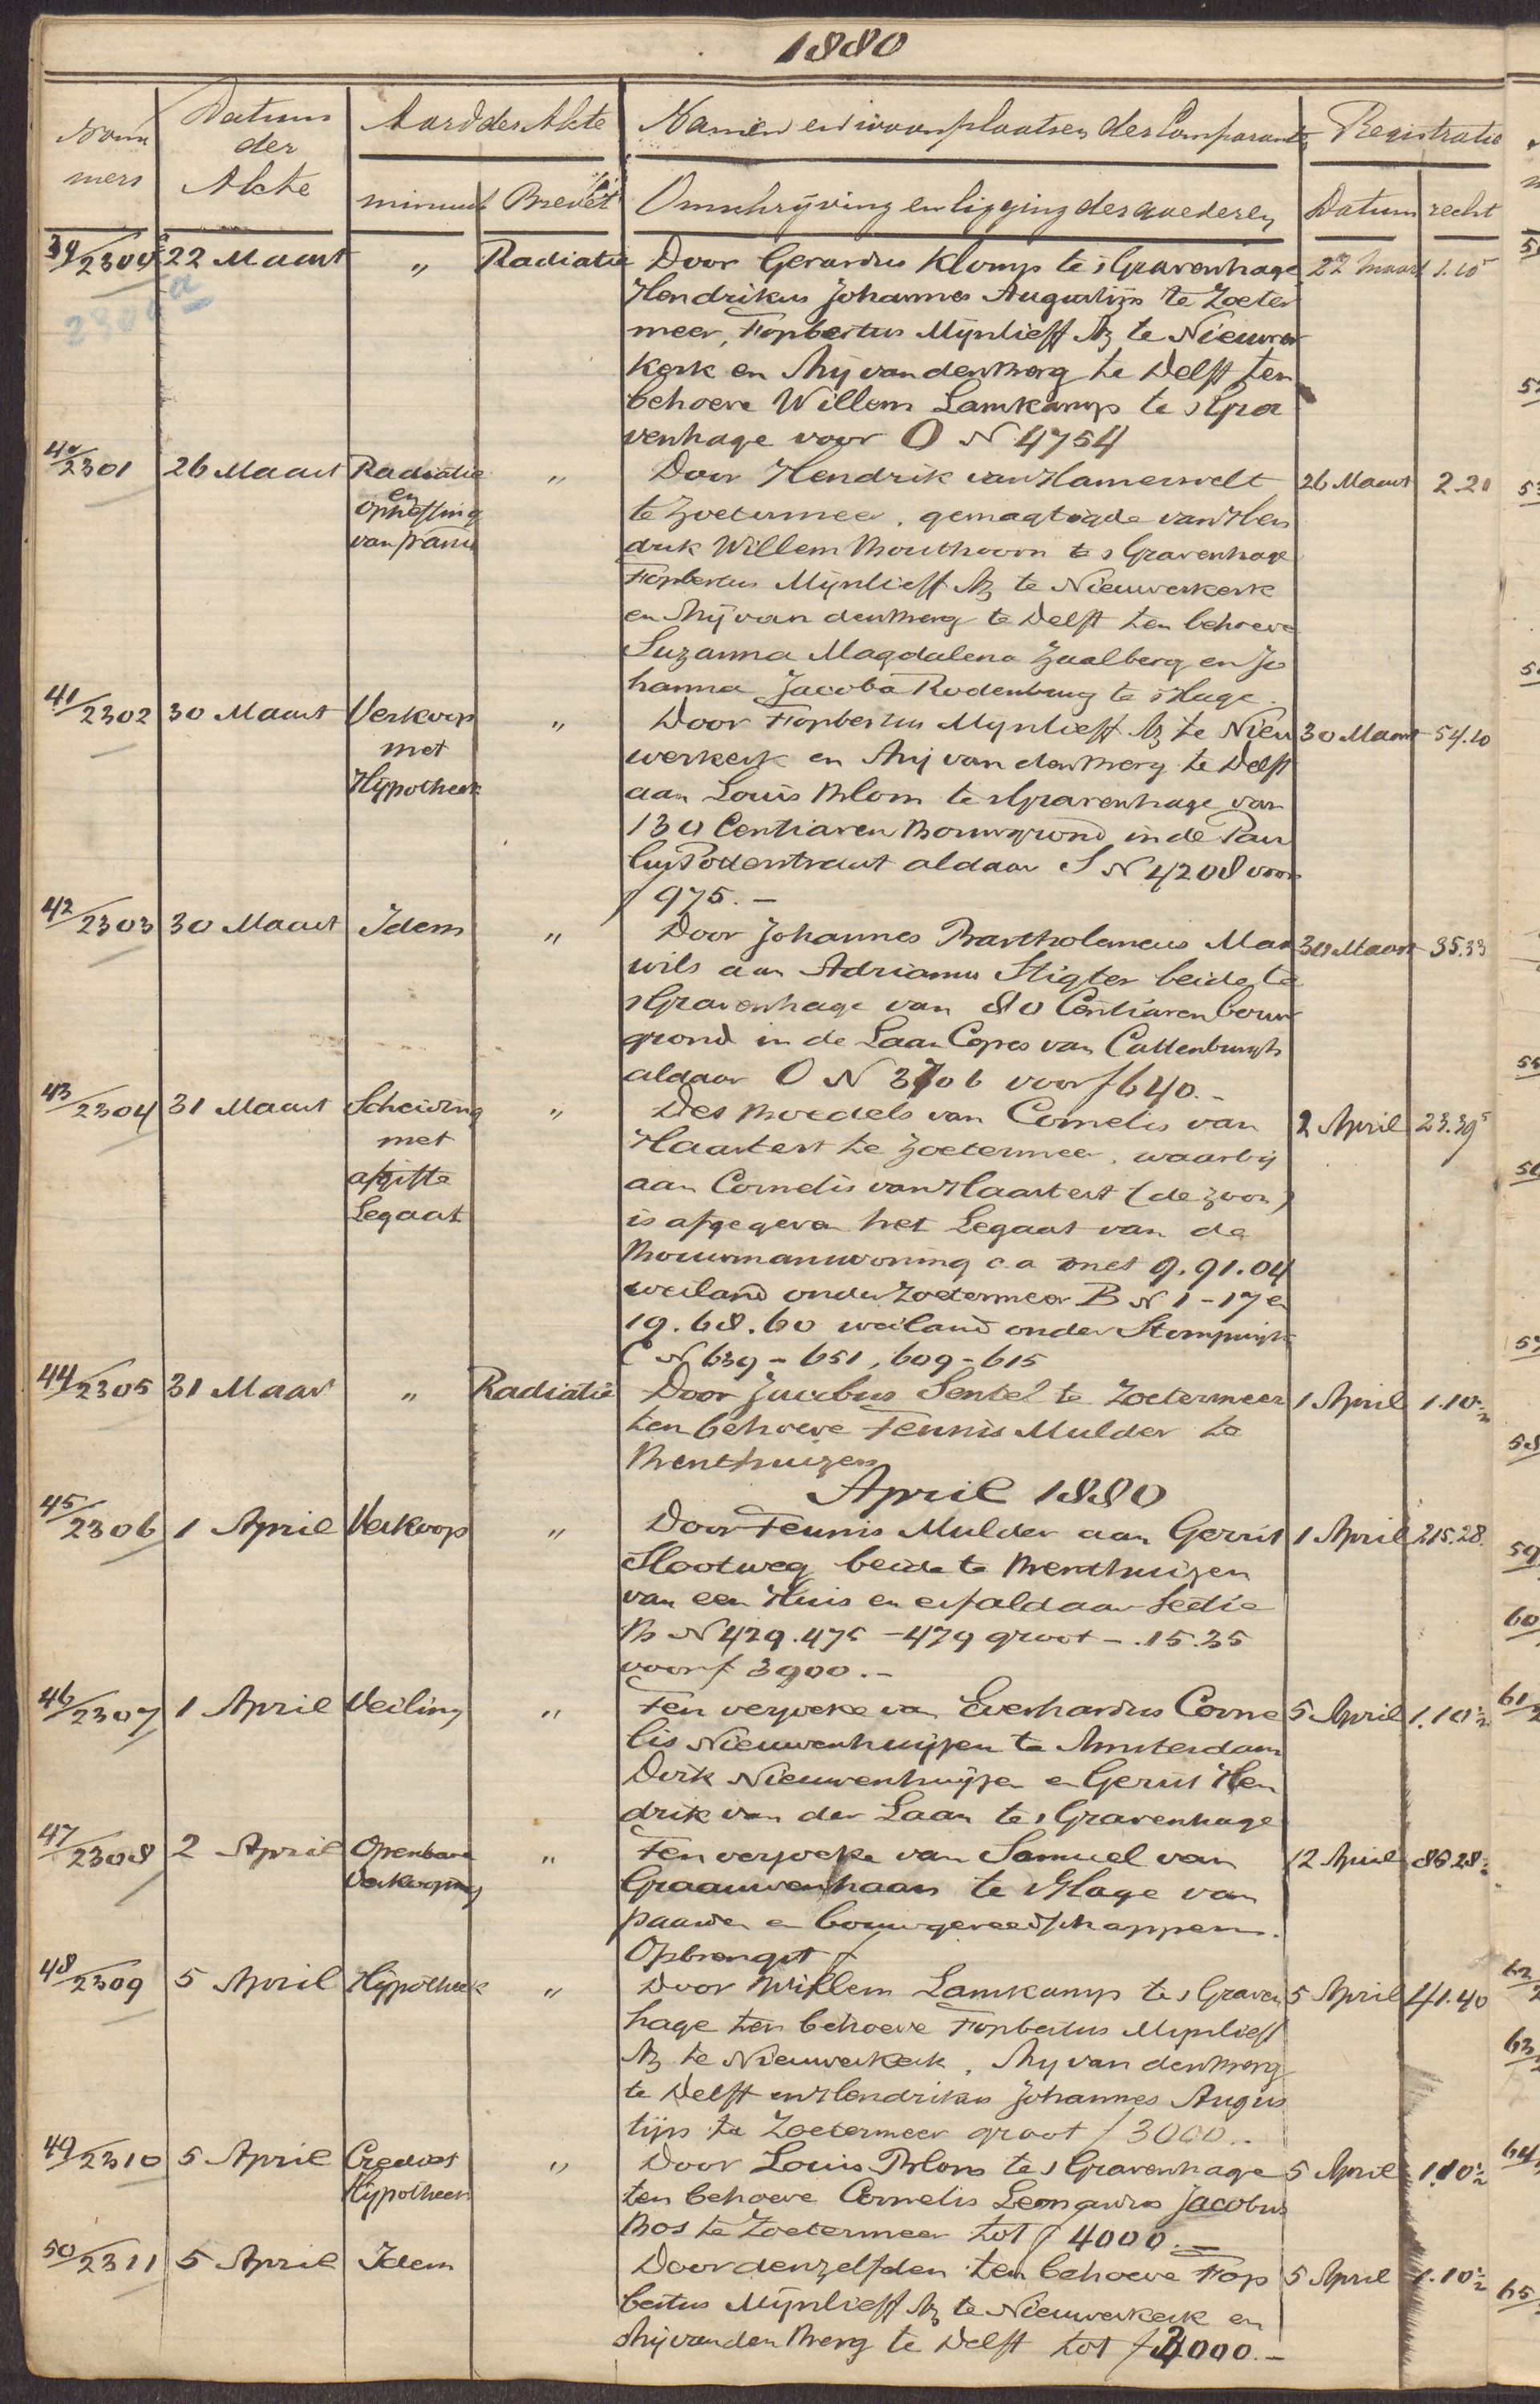 1880
Nom
mers
Datum
der
Akte
Aard der Akte
minuut Brevet
Namen en woonplaatsen der Comparanten
Omschrijving en ligging der goederen
Registratie
Datum recht
39/2300 22 Maart " Radiatie Door Gerardus Klomp te 's Gravenhage 22 Maart 1.10⁵
2300a
Hendrikus Johannes Augustijn te Zoeter
meer, Fopbertus Mijnlieff Az te Nieuwer
kerk en Arij van den Berg te Delft ten
behoeve Willem Lamkamp te 's Gra
venhage voor O N 4754
40/2301 26 Maart Radiatie " Door Hendrik van Hamersvelt 26 Maart 2.20
en
opheffing
van
te Zoetermeer, gemagtigde van Hen
drik Willem Bouthoorn te 's Gravenhage
Fopbertus Mijnlieff Az te Nieuwerkerk
en Arij van den Berg te Delft ten behoeve
Suzanna Magdalena Zaalberg en Jo
hanna Jacoba Rodenburg te 's Hage
41/2302 30 Maart Verkoop " Door Fopbertus Mijnlieff Az te Nieu 30 Maart 54.10
met
Hypotheek
werkerk en Arij van den Berg te Delft
aan Louis Blom te 's Gravenhage van
130 Centiaren Bouwgrond in de Pau
lus Potterstraat aldaar S N 4208 voor
f 975.-
42/2303 30 Maart Idem " Door Johannes Bartholomeus Mar 30 Maart 35.33
wils aan Adrianus Stigter beide te
's Gravenhage van 80 Centiaren bouw
grond in de Laan Copes van Cattenburgh
aldaar O N 3706 voor f 640.-
43/2304 31 Maart Scheiding " Des Boedels van Cornelis van 2 April 23.39⁵
met
afgifte
Legaat
Haastert te Zoetermeer, waarbij
aan Cornelis van Haastert (de zoon)
is afgegeven het Legaat van de
Bouwmanswoning c.a. met 9.91.04
weiland onder Zoetermeer B N 1-17 en
19.68.60 weiland onder Stompwijk
C N 639-651, 609-615
44/2305 31 Maart " Radiatie Door Jacobus Sentel te Zoetermeer 1 April 1.10½
ten behoeve Teunis Mulder te
Benthuizen
April 1880
45/2306 1 April Verkoop " Door Teunis Mulder aan Gerrit 1 April 215.28
Slootweg beide te Benthuizen
van een Huis en erf aldaar Sectie
B N 429.475-479 groot -.15.35
voor f 3900.-
46/2307 1 April Veiling " Ten verzoeke van Everhardus Corne 5 April 1.10½
lis Nieuwenhuijsen te Amsterdam
Dirk Nieuwenhuijsen en Gerrit Hen
drik van der Laan te 's Gravenhage
47/2308 2 April Openbare " Ten verzoeke van Samuel van 12 April 86.28½
Verkooping
Graauwenhaan te 's Hage van
paarden en bouwgereedschappen.
Opbrengst f
48/2309 5 April Hypotheek " Door Willem Lamkamp te 's Graven 5 April 41.40
hage ten behoeve Fopbertus Mijnlieff
Az te Nieuwerkerk, Arij van den Berg
te Delft en Hendrikus Johannes Augus
tijn te Zoetermeer groot f 3000.-
49/2310 5 April Crediet " Door Louis Blom te 's Gravenhage 5 April 1.10½
Hypotheek
ten behoeve Cornelis Leonardus Jacobus
Bos te Zoetermeer tot f 4000.-
50/2311 5 April Idem Door denzelfden ten behoeve Fop 5 April 1.10½
bertus Mijnlieff Az te Nieuwerkerk en
Arij van den Berg te Delft tot f 4000.-